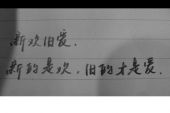 新欢旧爱.
新的是欢，旧的才是爱.